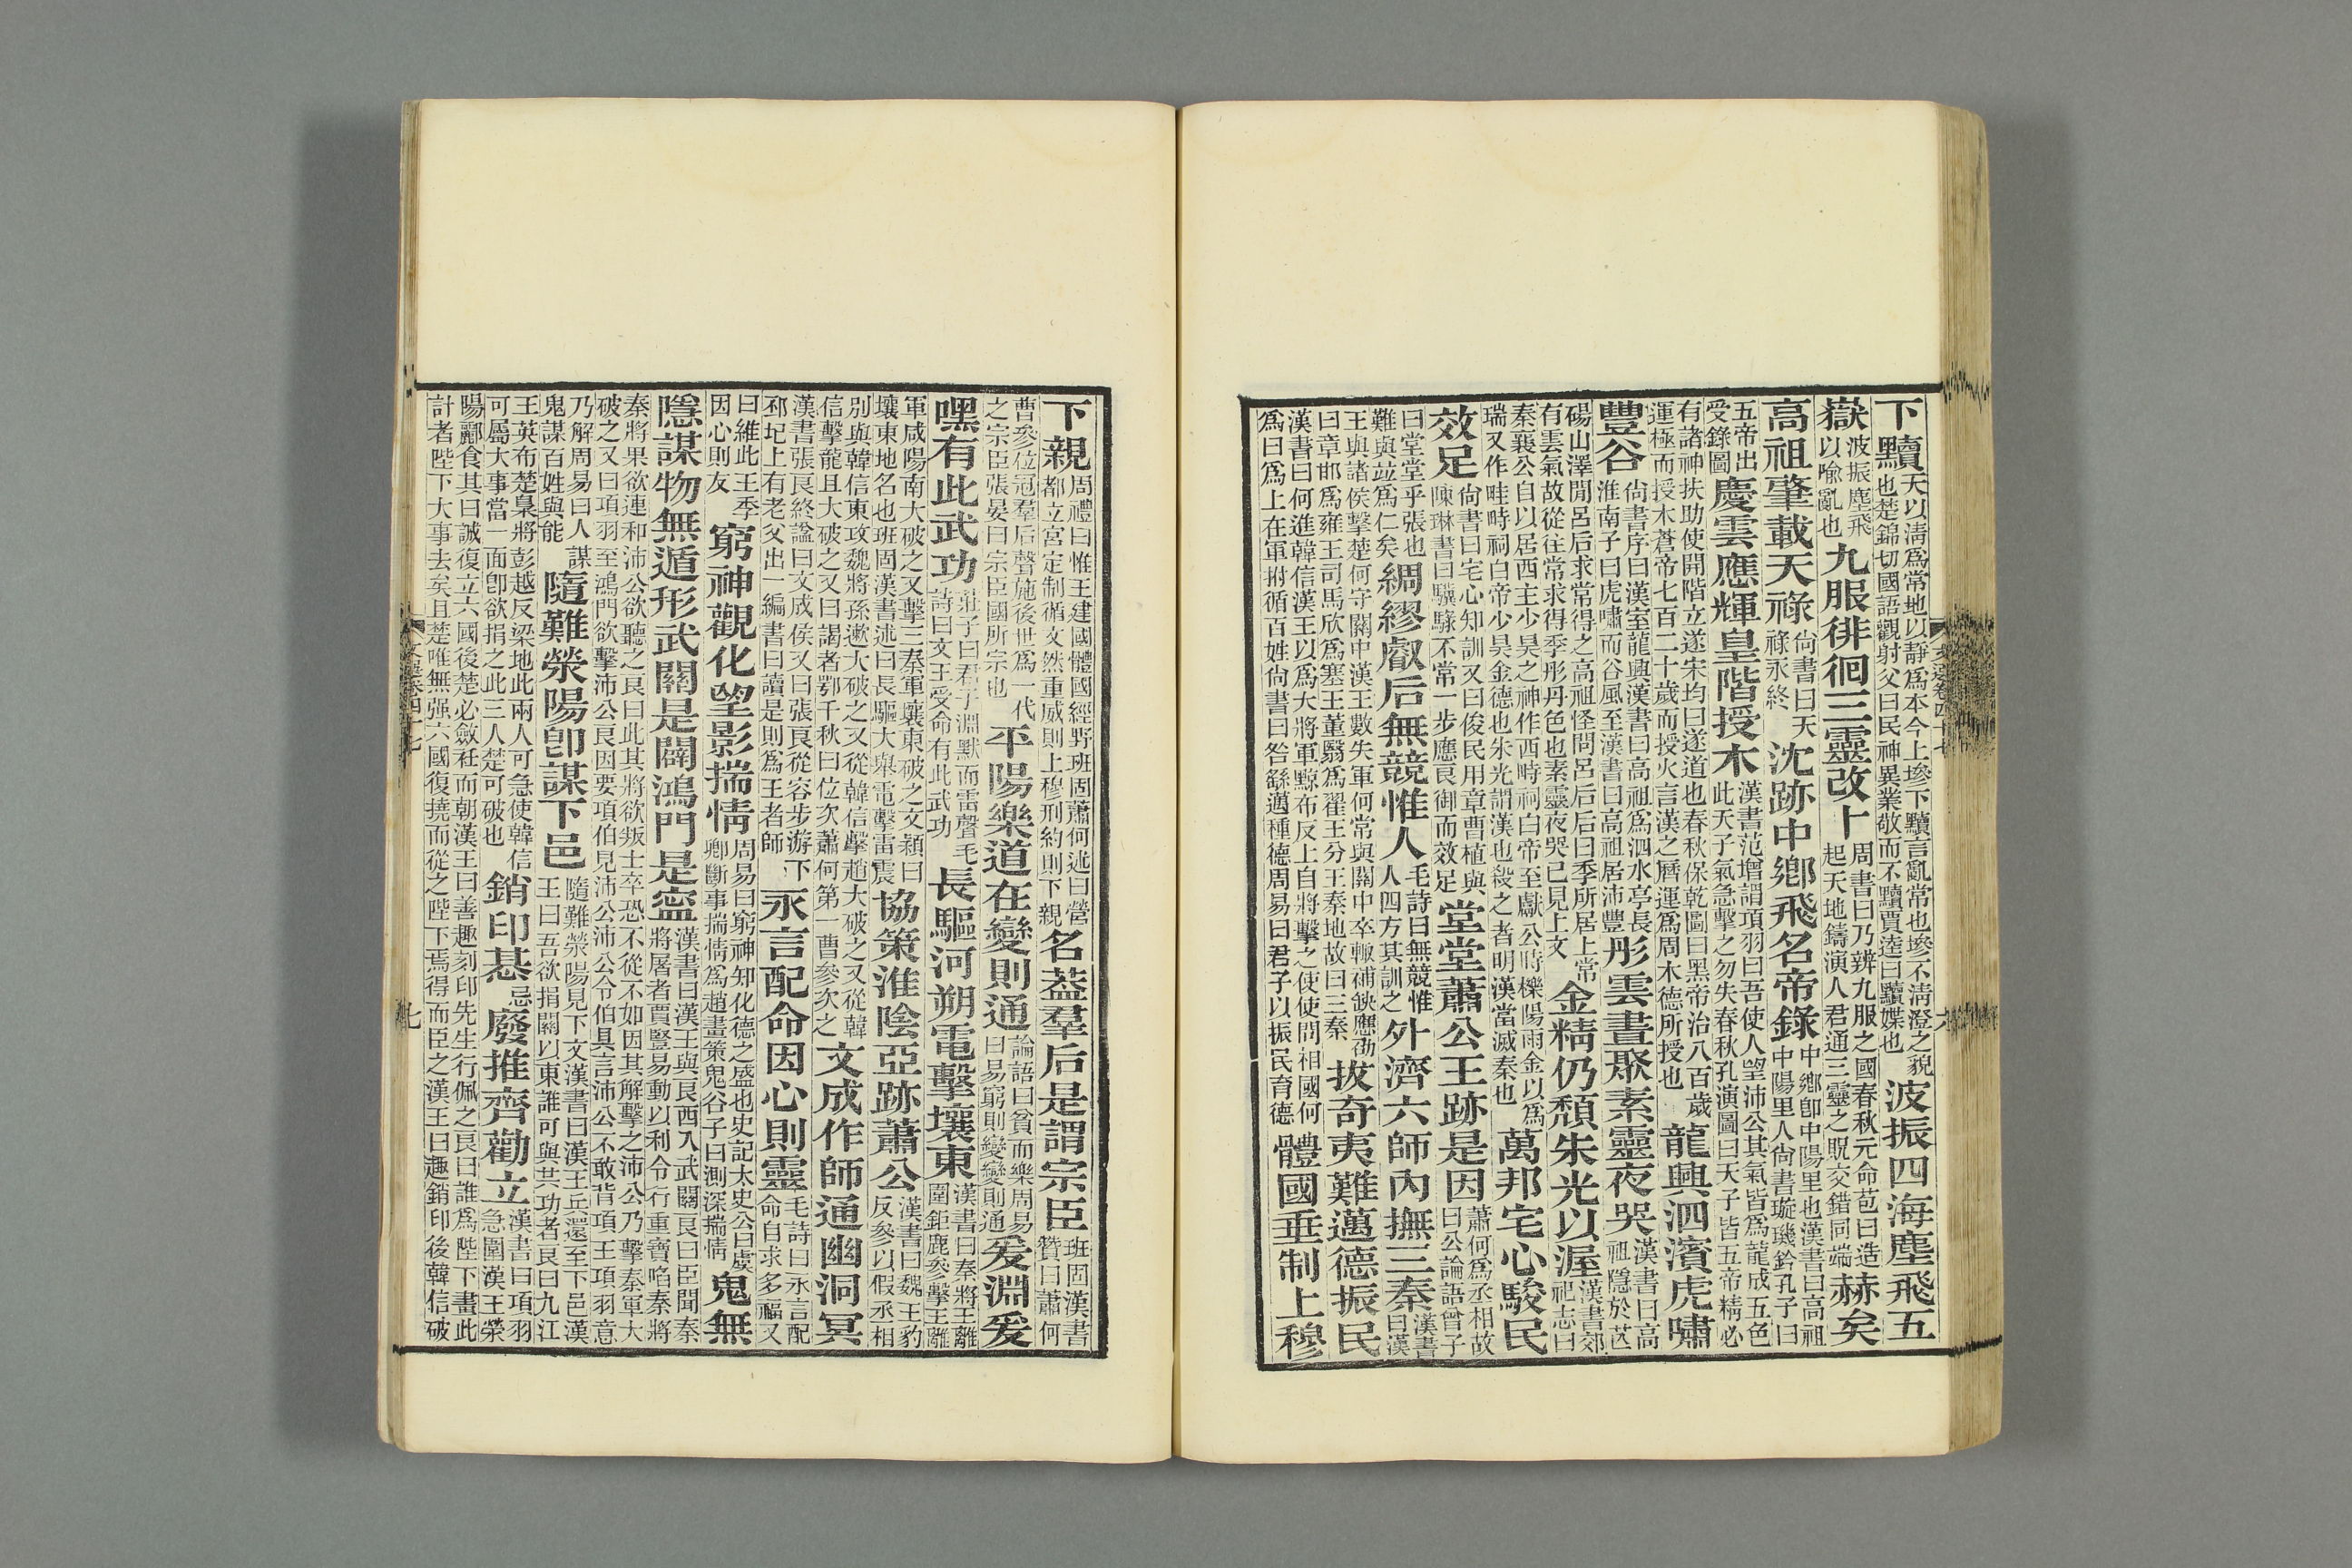 下黷天以清爲常地以靜爲本今上墋下黷言亂常也墋不清澄之貌也楚錦切國語觀射父曰民神異業敬而不黷賈逵曰黷媟也波振四海塵飛五
嶽波振塵飛以喻亂也九服徘徊三靈改卜周書曰乃辨九服之國春秋元命苞曰造起天地鑄演人君通三靈之貺交錯同端赫矣
高祖肇載天祿尚書曰天祿永終沈跡中鄉飛名帝錄中鄉卽中陽里也漢書曰高祖中陽里人尚書璇璣鈐孔子曰
五帝出受錄圖慶雲應輝皇階授木漢書范增謂項羽曰吾使人望沛公其氣皆爲龍成五色此天子氣急擊之勿失春秋孔演圖曰天子皆五帝精必
有諸神扶助使開階立遂宋均曰遂道也春秋保乾圖曰黑帝治八百歲運極而授木蒼帝七百二十歲而授火言漢之曆運爲周木德所授也龍興泗濱虎嘯
豐谷尚書序曰漢室龍興漢書曰高祖爲泗水亭長淮南子曰虎嘯而谷風至漢書曰高祖居沛豐彤雲晝聚素靈夜哭漢書曰高祖隱於芒
碭山澤閒呂后求常得之高祖怪問呂后后曰季所居上常有雲氣故從往常求得季彤丹色也素靈夜哭已見上文金精仍頹朱光以渥漢書郊祀志曰
秦襄公自以居西主少昊之神作西畤祠白帝至獻公時櫟陽雨金以爲瑞又作畦畤祠白帝少昊金德也朱光謂漢也殺之者明漢當滅秦也萬邦宅心駿民
效足尚書曰宅心知訓又曰俊民用章曹植與陳琳書曰驥騄不常一步應良御而效足堂堂蕭公王跡是因蕭何爲丞相故曰公論語曾子
曰堂堂乎張也難與並爲仁矣綢繆叡后無競惟人毛詩曰無競惟人四方其訓之外濟六師內撫三秦漢書曰漢
王與諸侯擊楚何守關中漢王數失軍何常與關中卒輙補鈌應劭曰章邯爲雍王司馬欣爲塞王董翳爲翟王分王秦地故曰三秦拔奇夷難邁德振民
漢書曰何進韓信漢王以爲大將軍黥布反上自將擊之使使問相國何爲曰爲上在軍拊循百姓尚書曰咎繇邁種德周易曰君子以振民育德體國垂制上穆
下親周禮曰惟王建國體國經野班固蕭何述曰營都立宮定制循文然重威則上穆刑約則下親名蓋羣后是謂宗臣班固漢書贊曰蕭何
曹參位冠羣后聲施後世爲一代之宗臣張晏曰宗臣國所宗也平陽樂道在變則通論語曰貧而樂周易曰易窮則變變則通爰淵爰
嘿有此武功莊子曰君子淵默而雷聲毛詩曰文王受命有此武功長驅河朔電擊壤東漢書曰秦將王離圍鉅鹿參擊王離
軍咸陽南大破之又擊三秦軍壤東破之文穎曰壤東地名也班固漢書述曰長驅大舉電擊雷震協策淮陰亞跡蕭公漢書曰魏王豹反參以假丞相
別與韓信東攻魏將孫遬大破之又從韓信擊趙大破之又從韓信擊龍且大破之又曰謁者鄂千秋曰位次蕭何第一曹參次之文成作師通幽洞冥
漢書張良終諡曰文成侯又曰張良從容步游下邳圯上有老父出一編書曰讀是則爲王者師永言配命因心則靈毛詩曰永言配命自求多福又
曰維此王季因心則友窮神觀化望影揣情周易曰窮神知化德之盛也史記太史公曰虞卿斷事揣情爲趙畫策鬼谷子曰測深揣情鬼無
隱謀物無遁形武關是闢鴻門是寧漢書曰漢王與良西入武關良曰臣聞秦將屠者賈豎易動以利令行重寶啗秦將
秦將果欲連和沛公欲聽之良曰此其將欲叛士卒恐不從不如因其解擊之沛公乃擊秦軍大破之又曰項羽至鴻門欲擊沛公良因要項伯見沛公沛公令伯具言沛公不敢背項王項羽意
乃解周易曰人謀鬼謀百姓與能隨難滎陽卽謀下邑隨難滎陽見下文漢書曰漢王兵還至下邑漢王曰吾欲捐關以東誰可與共功者良曰九江
王英布楚梟將彭越反梁地此兩人可急使韓信可屬大事當一面卽欲捐之此三人楚可破也銷印惎忌廢推齊勸立漢書曰項羽急圍漢王滎
陽酈食其曰誠復立六國後楚必斂衽而朝漢王曰善趣刻印先生行佩之良曰誰爲陛下畫此計者陛下大事去矣且楚唯無强六國復撓而從之陛下焉得而臣之漢王曰趣銷印後韓信破
文選卷四十七
七